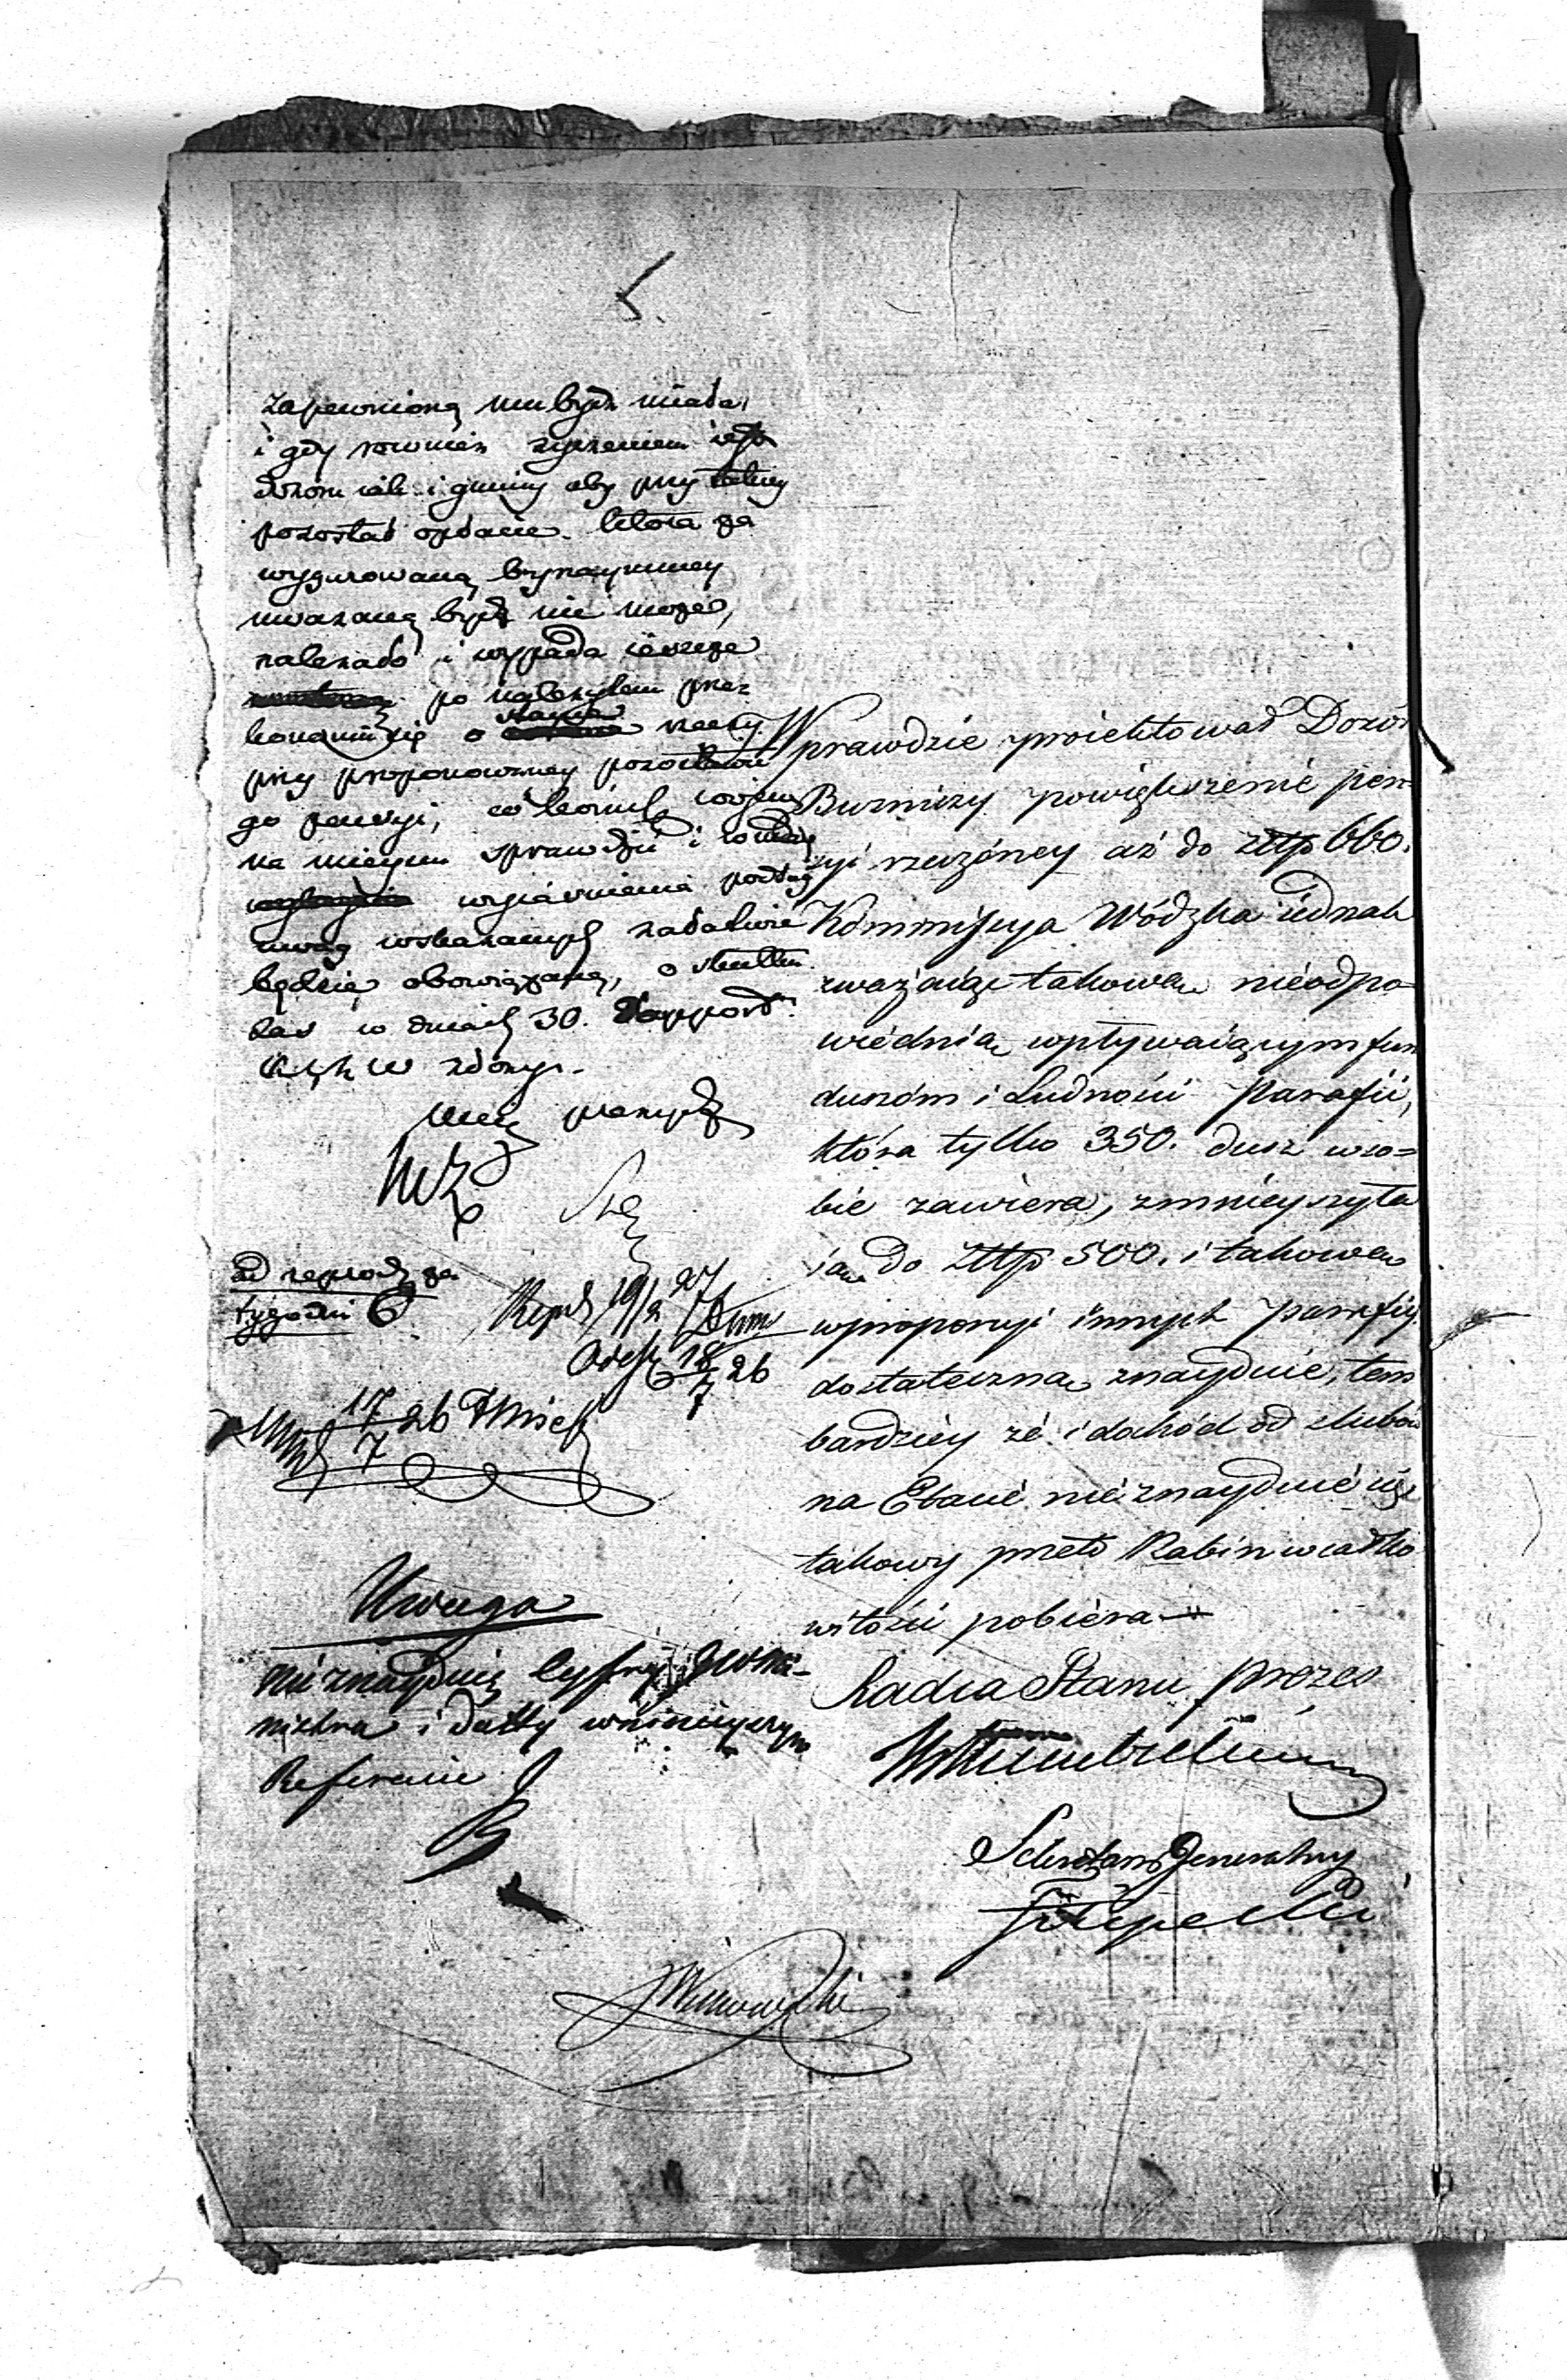 zapewnioną mu bydź miała,
i gdy rownież życzeniem iest
dozoru iak i gminy aby przy takiey
pozostał opłacie. Ktora za
wygurowaną bynaymniey
uważaną bydź nie może,
należało i wypada ieszcze
po należytem prze
konaniu się o stanie rzeczy
przy proponowaney pozostawić
go pensyi, co kommis woiew
na mieyscu sprawdzić i
wyiaśnienia podług
uwag wskazanych zadaleko
będzie obowiązaną, o skutku
zaś w dniach 30. Rapport
złoży.
ad reprod za
tygodni 6
Repr 19/2 27
18/7 26
17/7 26
Uwaga
nie znayduię Cyfry JW Mi-
nistra i datty w ninieyszym
Referacie
Wprawdzie proiektował Dozór
Bużniczy powiększenie pen-
syi rzeczoney aż do złtp 660.
Kommissya Wódzka iednak
zważaiąc takową nieodpo-
wiednią wpływaiącym fun
duszom i Ludności Parafii,
która tylko 350. dusz w so-
bie zawiera, zmnieyszyła
ią do Złtp 500. i takową
w proporcyi innych parafiy
dostateczną znayduie, tem
bardziey że i dochód od slubów
na Etacie nieznayduie się
takowy przeto Rabin w całko
witości pobiera
Radca Stanu Prezes
Sekretarz Generalny
Filipecki